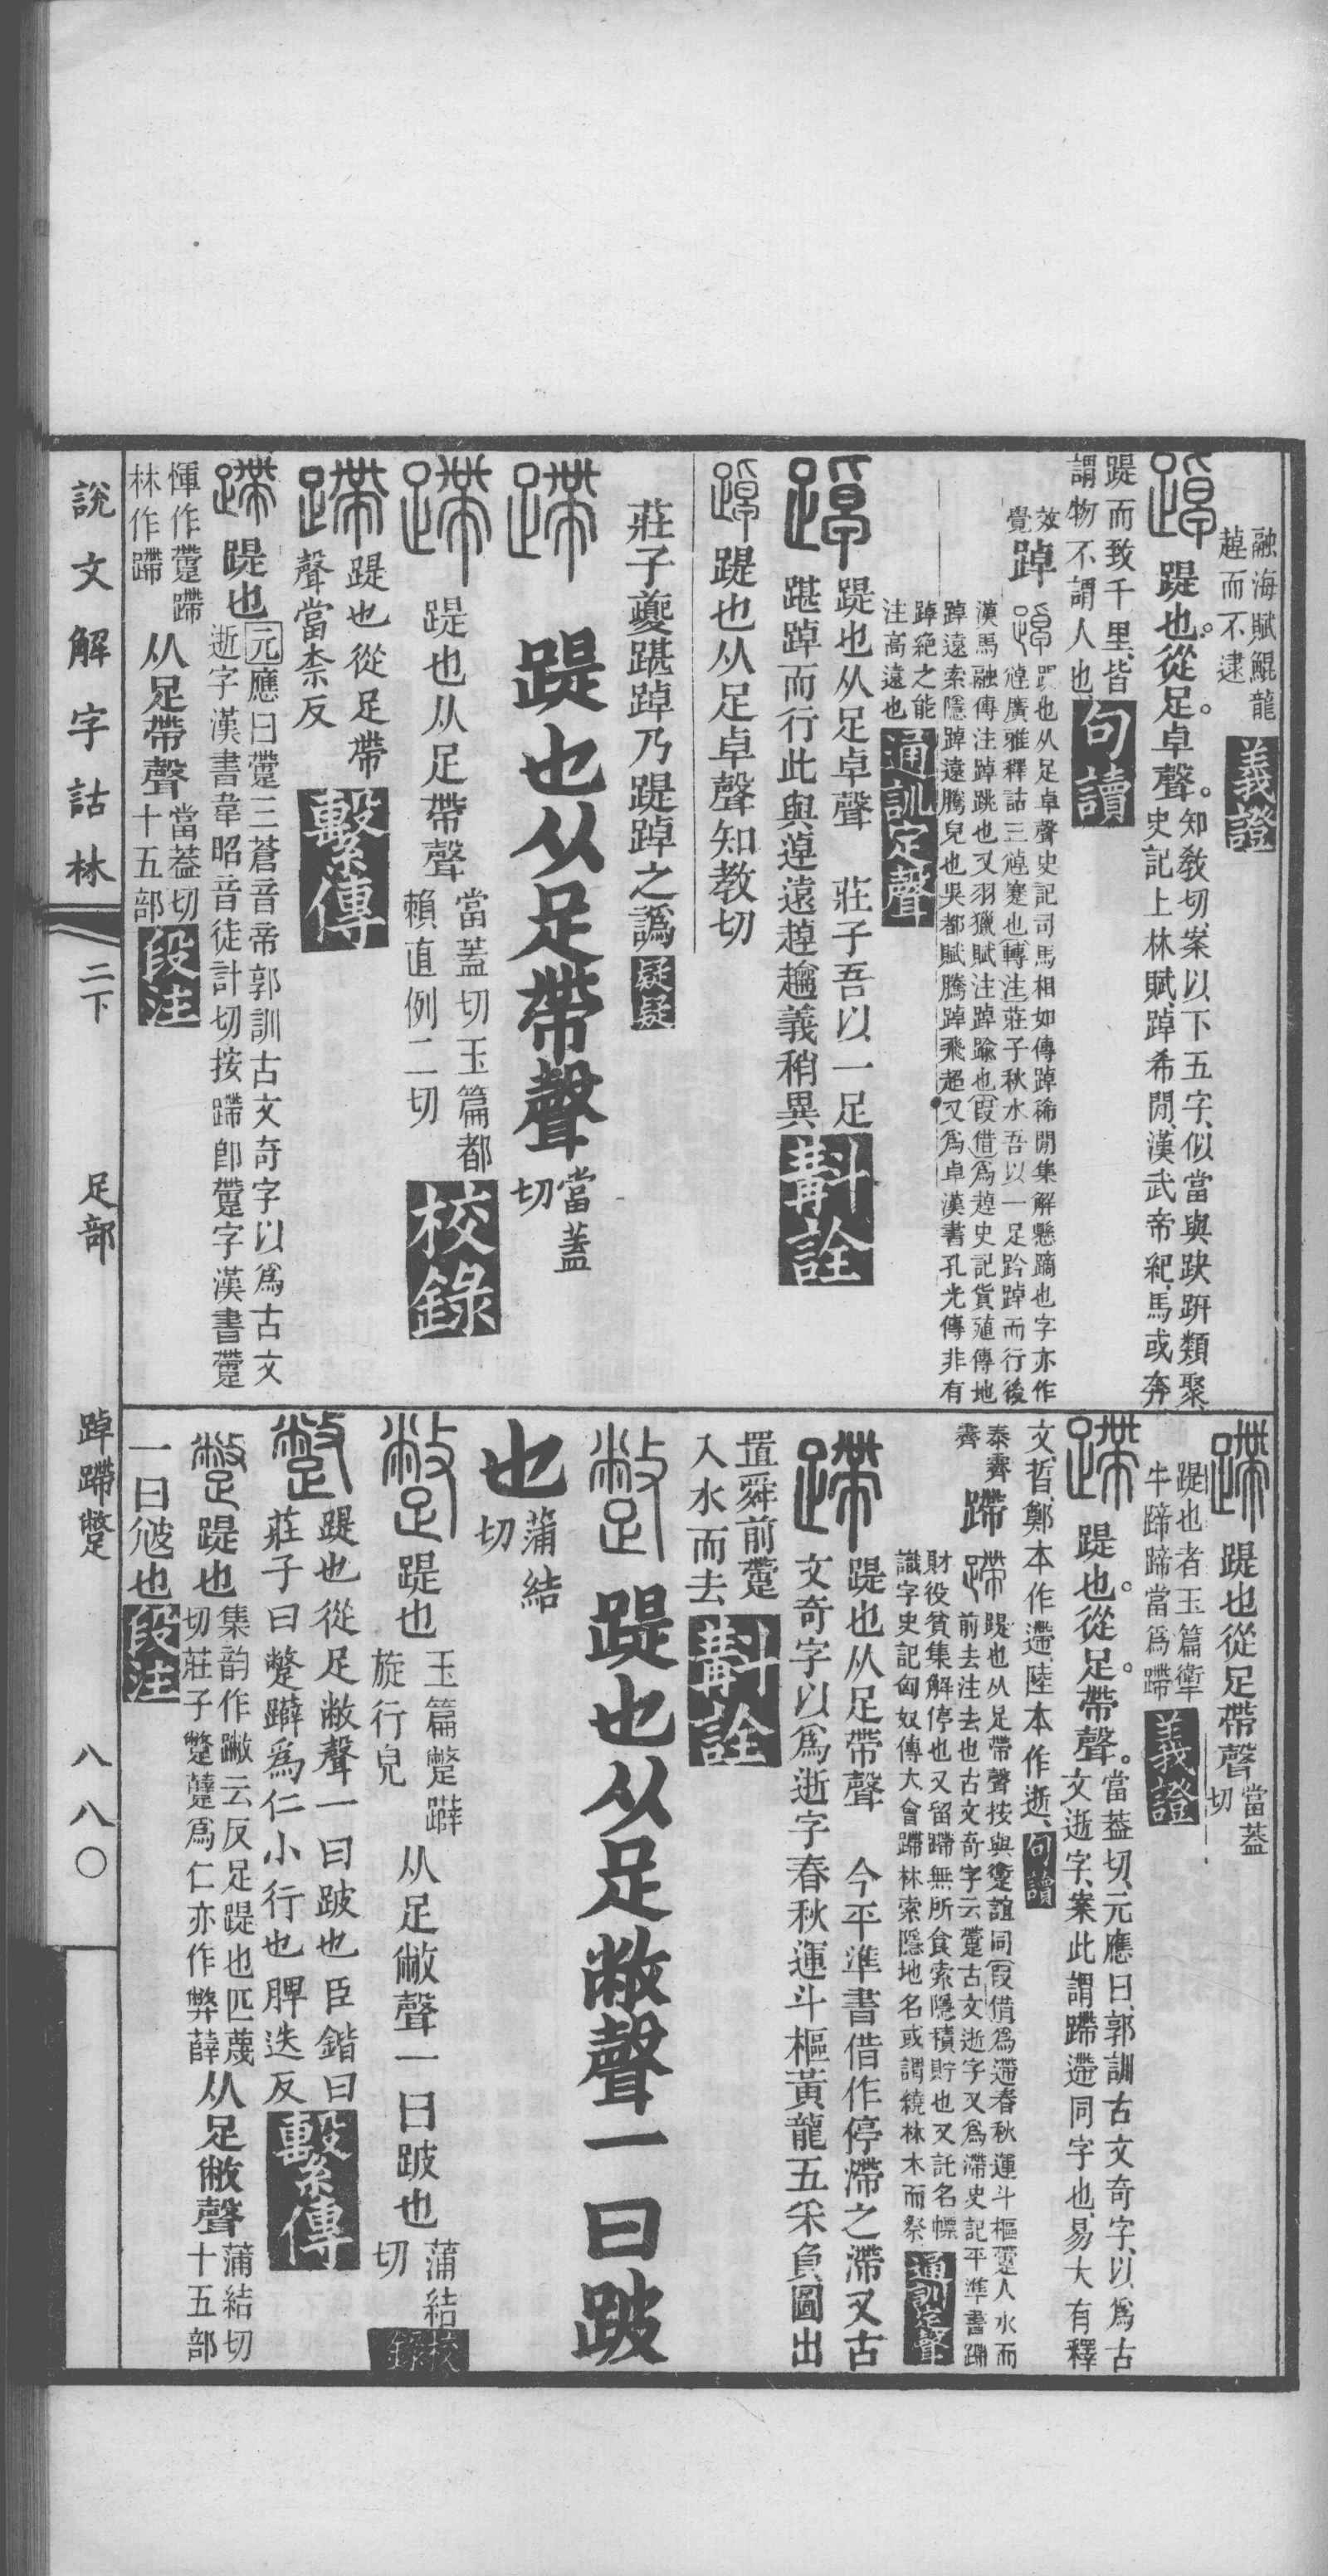 融海賦鯤龍
趠而不逮
義證
踶也。從足。卓聲。
知敎切、案以下五字、似當與趹趼類聚、
史記上林賦、踔希閒、漢武帝紀、馬或奔
踶而致千里、皆
謂物不謂人也
句讀
效
覺
踔
踶也从足卓聲史記司馬相如傳踔稀閒集解懸擿也字亦作
逴廣雅釋詁三逴蹇也轉注莊子秋水吾以一足趻踔而行後
漢馬融傳注踔跳也又羽獵賦注踔踰也叚借爲趠史記貨殖傳地
踔遠索隱踔遠騰皃也吳都賦騰踔飛超又爲卓漢書孔光傳非有
踔絶之能
注高遠也
通訓定聲
踶也从足卓聲　莊子吾以一足
踸踔而行此與逴遠趠趫義稍異
斠詮
踶也从足卓聲知教切
莊子夔踸踔乃踶踔之譌
疑疑
踶也从足帶聲
當蓋
切
踶也从足帶聲
當蓋切玉篇都
賴直例二切
校錄
踶也從足帶
聲當柰反
繫傳
踶也
元應曰䠠三蒼音帝郭訓古文奇字以爲古文
逝字漢書韋昭音徒計切按蹛卽䠠字漢書䠠
惲作䠠蹛
林作蹛
从足帶聲
當葢切
十五部
段注
踶也從足帶聲
當葢
切
踶也者玉篇䡺
牛蹄蹄當爲蹛
義證
踶也。從足。帶聲。
當葢切、元應曰、郭訓古文奇字、以爲古
文逝字、案此謂蹛遰同字也、易大有釋
文、晢、鄭本作遰、陸本作逝、
句讀
泰霽
霽
蹛
踶也从足帶聲按與躗誼同叚借爲遰春秋運斗樞䠠入水而
前去注去也古文奇字云䠠古文逝字又爲滯史記平準書蹛
財役貧集解停也又留蹛無所食索隱積貯也又託名幖
識字史記匈奴傳大會蹛林索隱地名或謂繞林木而祭
通訓定聲
踶也从足帶聲　今平準書借作停滯之滯又古
文奇字以爲逝字春秋運斗樞黃龍五采負圖出
置舜前䠠
入水而去
斠詮
踶也从足敝聲一曰跛
也
蒲結
切
踶也
玉篇蹩躃
旋行皃
从足敝聲一曰跛也
蒲結
切
校錄
踶也從足敝聲一曰跛也臣鍇曰
莊子曰蹩躃爲仁小行也脾迭反
繫傳
踶也
集韵作蹴云反足踶也匹蔑
切莊子蹩躠爲仁亦作弊薛
从足敝聲
蒲結切
十五部
一曰尳也
段注
說文解字詁林
二下
足部
踔蹛蹩
八八〇